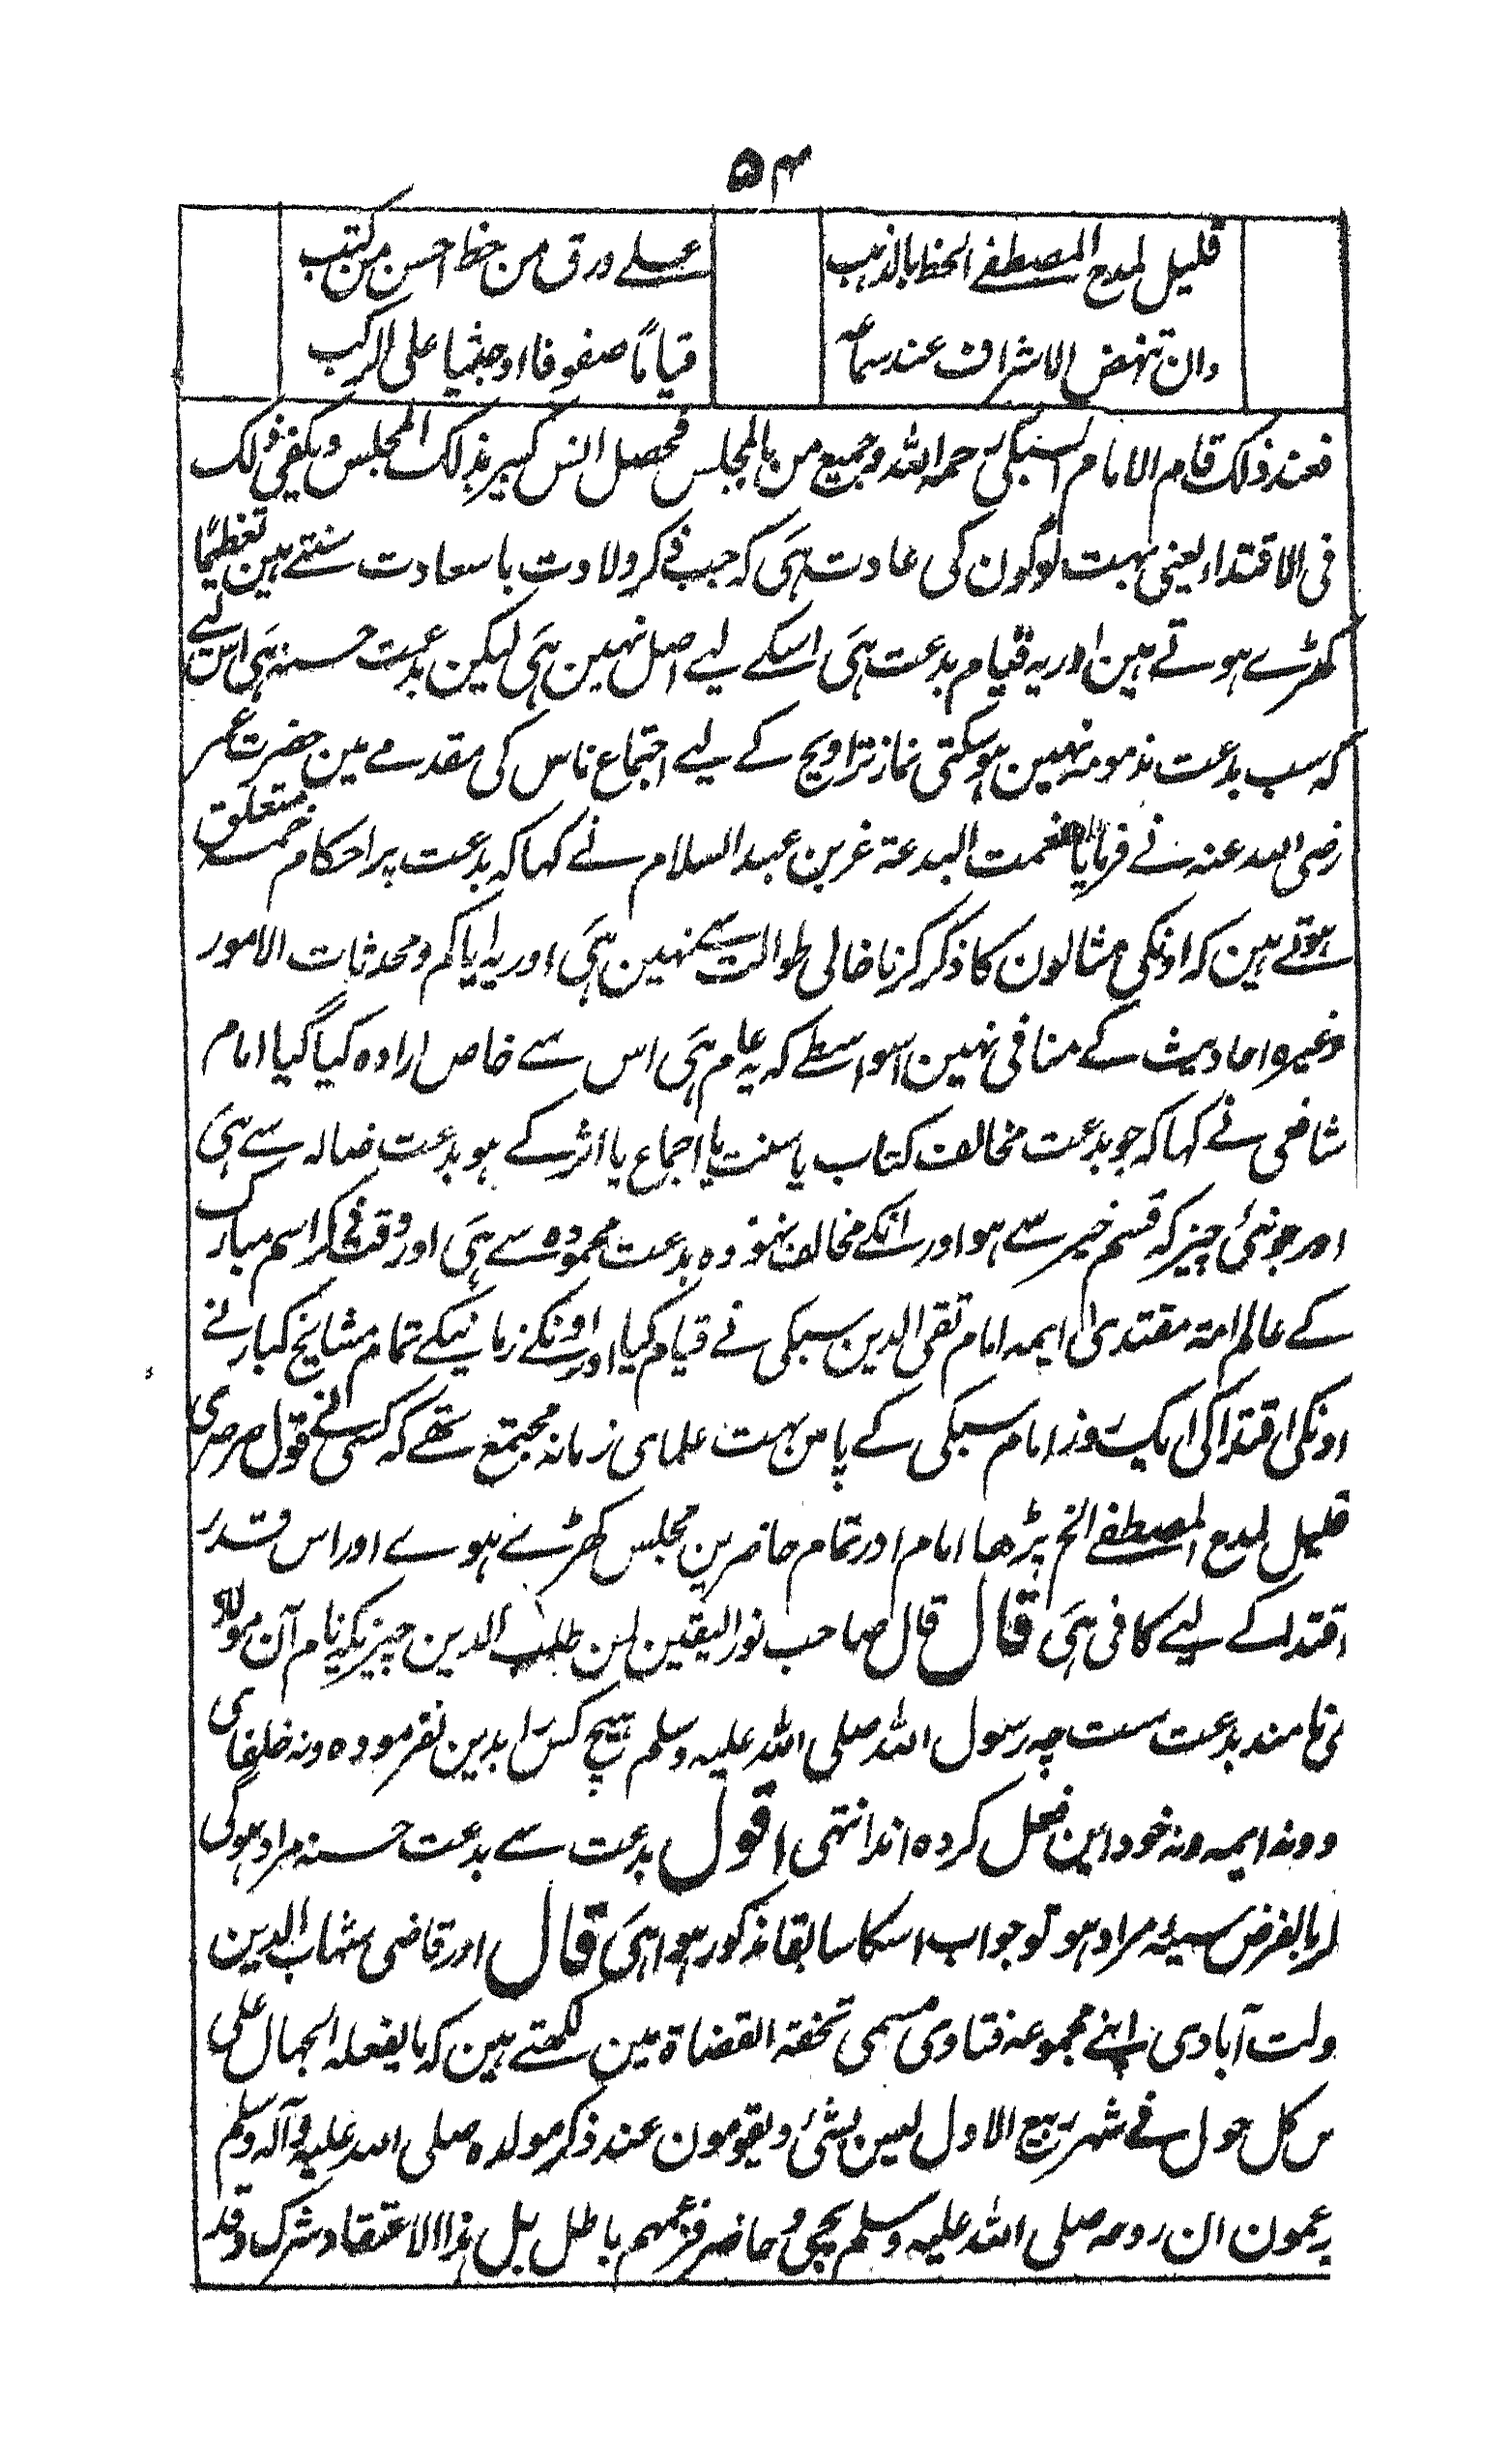 ۵۴
قلیل لمدح المصطفے الخط بالذہب علے ورق من خط احسن من کتب
وان تنہض الاشراف عند سماعہ قیاماً صفوفا اوجثیا علی الرکب
فعند ذلک قام الامام السبکی رحمہ اللہ وجمیع من بالمجلس فحصل انس کبیر بذلک المجلس ویکفی ذلک
فی الاقتداء یعنی بہت لوگون کی عادت ہی کہ جب ذکر ولادت باسعادت سنتے ہین تعظیماً
کھڑے ہوتے ہین اور یہ قیام بدعت ہی اسکے لیے اصل نہین ہی لیکن بدعت حسنہ ہی اس لیے
کہ سب بدعت مذمومہ نہین ہو سکتی نماز تراویح کے لیے اجتماع ناس کی مقدمے مین حضرت عمر
رضی اللہ عنہ نے فرمایا نعمت البدعۃ عز بن عبد السلام نے کہا کہ بدعت پر احکام خمسہ متعلق
ہوتے ہین کہ اونکی مثالون کا ذکر کرنا خالی طوالت سے نہین ہی اور یہ ایاکم ومحدثات الامور
وغیرہ احادیث کے منافی نہین اسواسطے کہ یہ عام ہی اس سے خاص ارادہ کیا گیا امام
شافعی نے کہا کہ جو بدعت مخالف کتاب یا سنت یا اجماع یا اثر کے ہو بدعت ضالہ سے ہی
اور جو نئی چیز کہ قسم خیر سے ہو اور انکے مخالف نہو وہ بدعت محمودہ سے ہی اور وقت ذکر اسم مبارک
کے عالم امۃ مقتدی ایمہ امام تقی الدین سبکی نے قیام کیا اور اونکے زمانیکے تمام مشایخ کبار نے
اونکی اقتدا کی ایک روز امام سبکی کے پاس بہت علمای زمانہ مجتمع تھے کہ کسی نے قول صرصری
قلیل لمدح المصطفے الخ پڑھا امام اور تمام حاضرین مجلس کھڑے ہوے اور اس قدر
اقتدا کے لیے کافی ہی قال قال صاحب نور الیقین لمن طلب الدین چیزیکہ بنام آن مولود
می نامند بدعت ست چہ رسول اللہ صلی اللہ علیہ وسلم ہیچ کس را بدین نفرمودہ ونہ خلفای
و ونہ ایمہ ونہ خود این فعل کردہ اند انتہی اقول بدعت سے بدعت حسنہ مراد ہوگی
اور بالفرض سیئہ مراد ہو تو جواب اسکا سابقا مذکور ہوا ہی قال اور قاضی شہاب الدین
ولت آبادی اپنے مجموعہ فتاوی مسمی تحفۃ القضاۃ مین لکھتے ہین کہ ما یفعلہ الجہال علی
س کل حول فے شہر ربیع الاول لیس بشئ ویقومون عند ذکر مولدہ صلی اللہ علیہ وآلہ وسلم
یزعمون ان روحہ صلی اللہ علیہ وسلم یجئ وحاضر فزعمہم باطل بل ہذا الاعتقاد شرک وقد